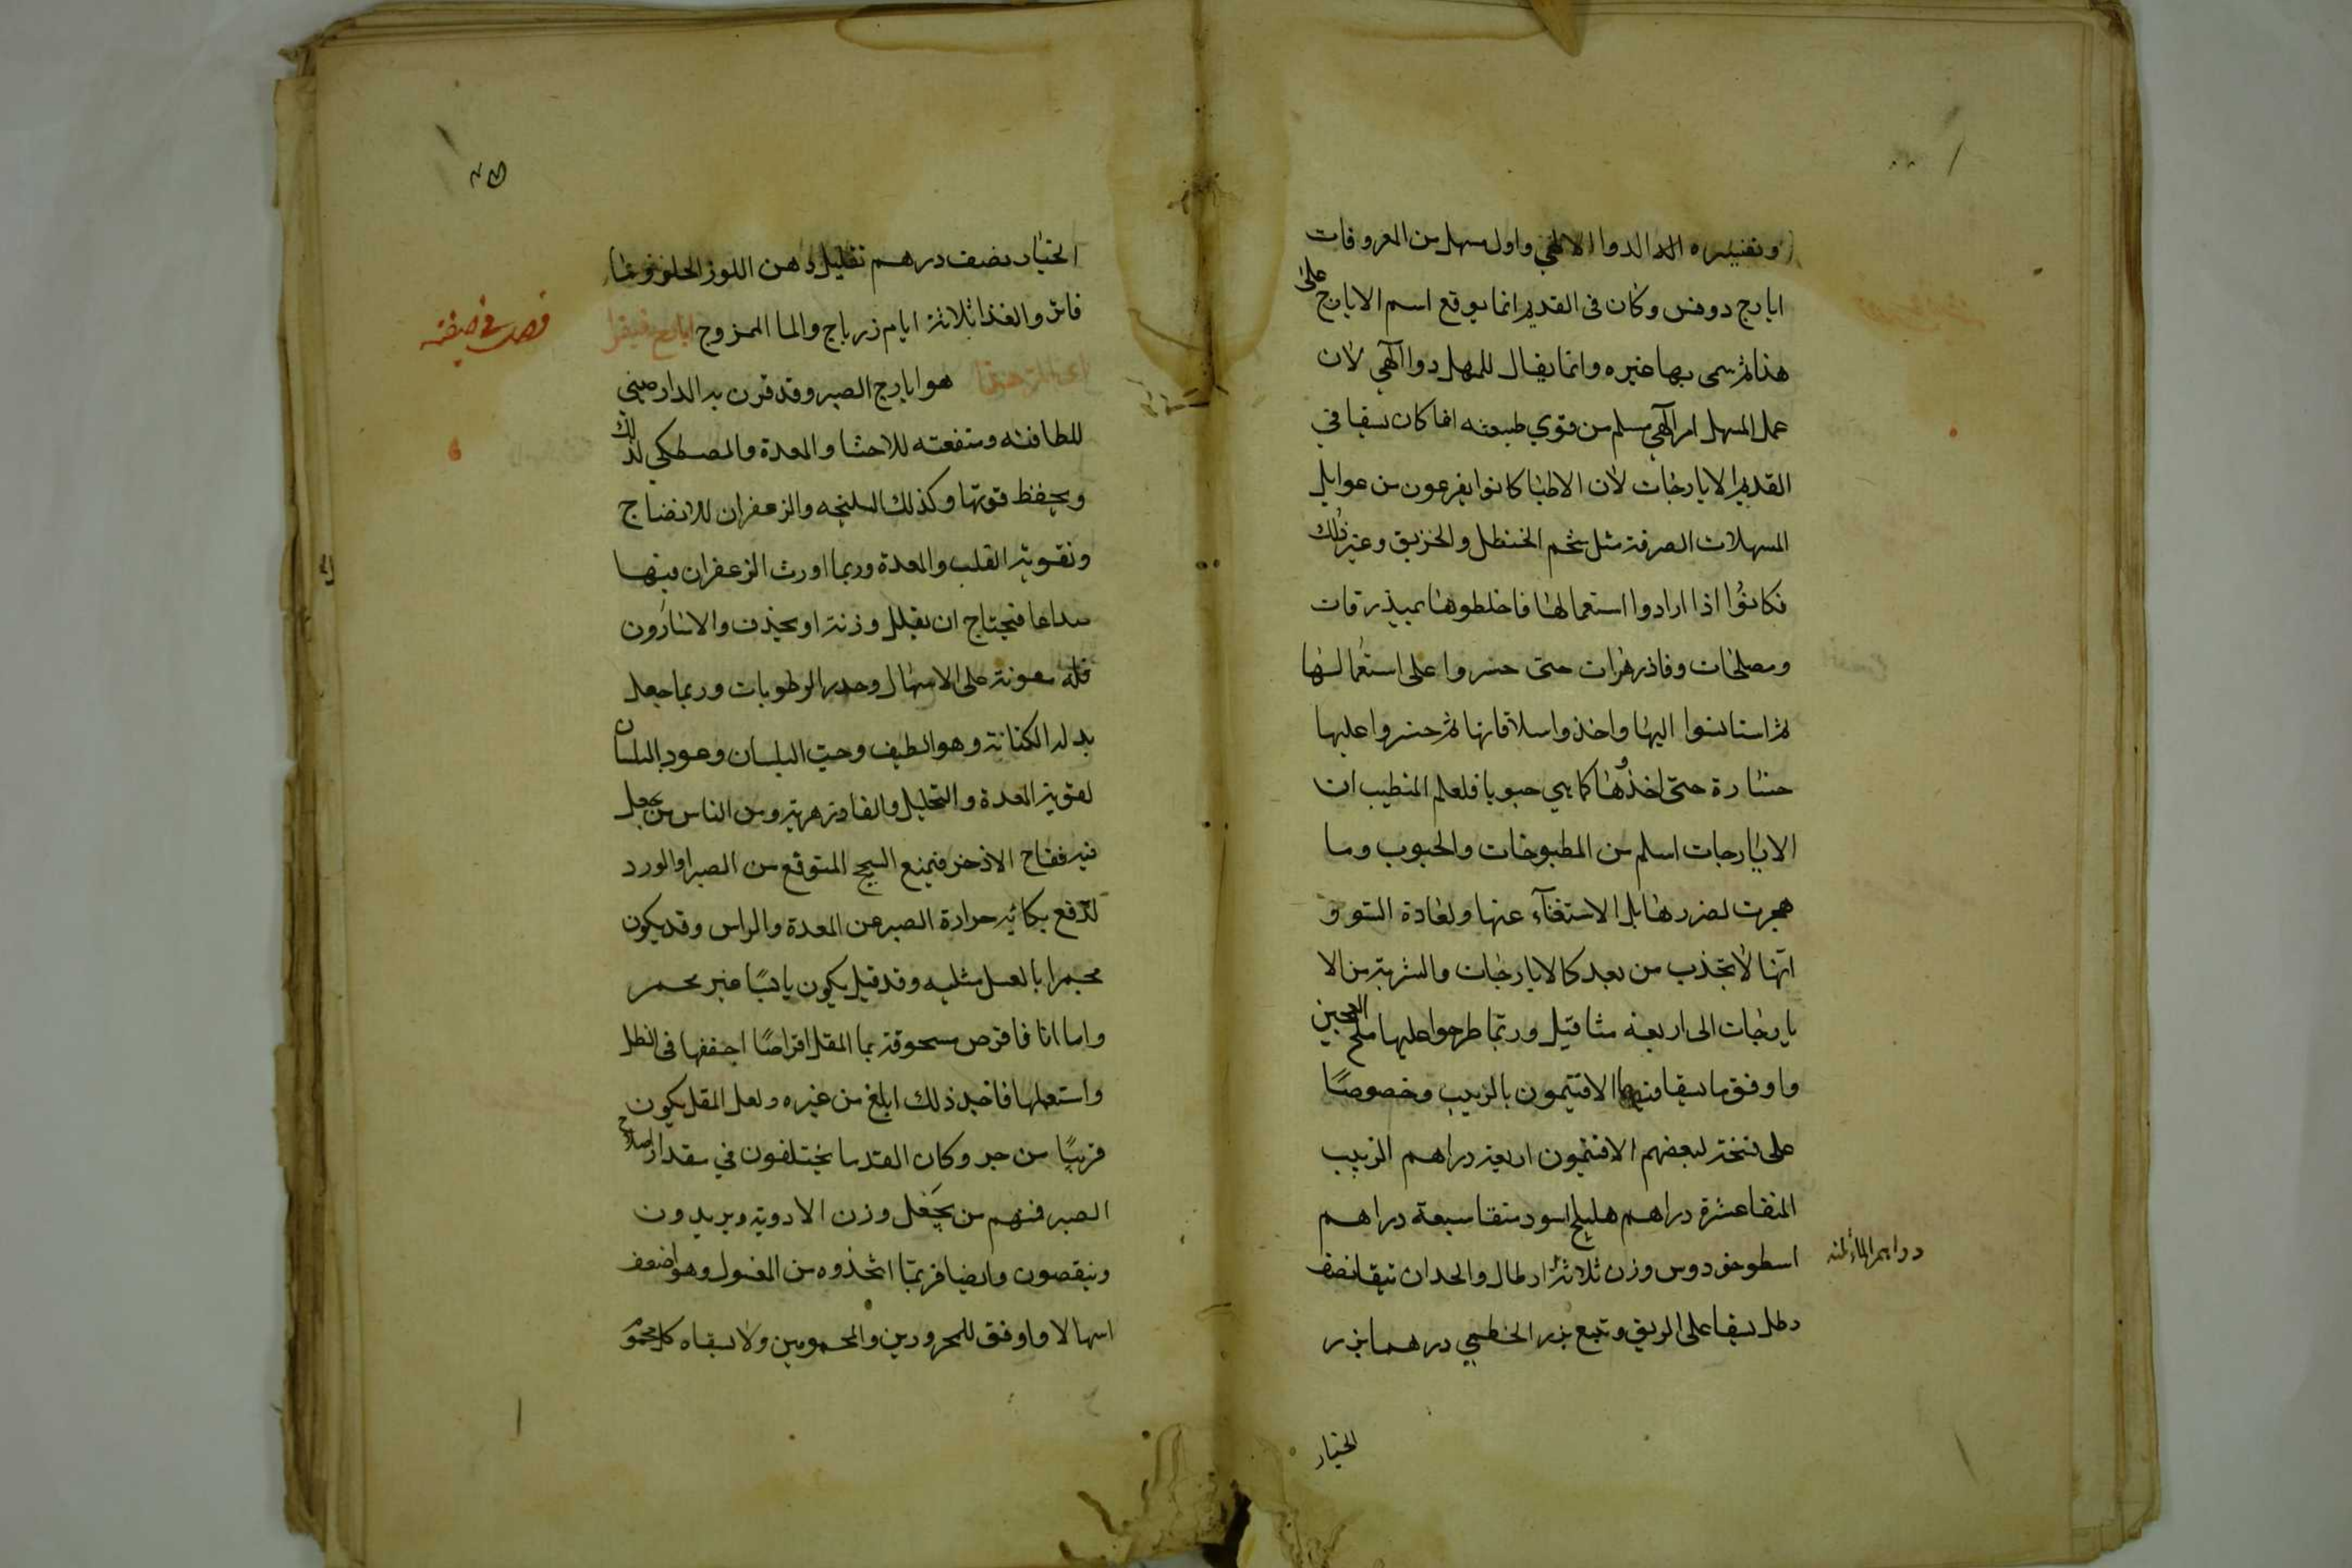 وتفسيره الدالدوا الالهي واول مسهل من المعروفات
ايارج دوفس وكان في القديم انما يوقع اسم الايارج على
هذا ثم سمى بها غيره وانما يقال للمسهل دوا آلهي لان
عمل المسهل امر آلهي مسلم من قوي طبيعته انما كان يسقيا في
القديم الايارجات لان الاطبا كانوا يفزعون من غوايل
المسهلات الصرفة مثل شحم الحنظل والخربق وغير ذلك
فكانوا اذا ارادوا استعمالها فاخلطوها بمبذرقات
ومصلحات وفاذزهرات حتى جسروا على استعمالها
ثم استانسوا اليها واخذوا سلاقاتها ثم جسروا عليها
جسارة حتى اخذوها كما هي حبوبا فلعلم المتطيب ان
الايارجات اسلم من المطبوخات والحبوب وما
هجرت لضررها بل الاستغنآء عنها ولعادة السو و
انها لاتجذب من بعد كالايارجات والشربة من الا
يارجات الى اربعة مثاقيل وربما طرحوا عليها ملح العجين
وا وفق ما يسقا فيها الافتيمون بالزبيب وخصوصًا
على نسخة لبعضهم الافتيمون اربعة دراهم الزبيب
المنقا عشرة دراهم هليلج اسود منقا سبعة دراهم
اسطوخودوس وزن ثلاثة ارطال والحدان يبقا نصف
رطل يسقا على الريق وتتبع بزر الخطمي درهما بزر
الخيار
الخيار نصف درهم بقليل دهن اللوز الحلو وبما
فاتر والغذا ثلاثة ايام زرباج والما الممزوج ايارج فيقرا
هو ايارج الصبر وقد قرن به الدارصيني
للطافته ومنفعته للاحشا والمعدة والمصطكي لذلك
ويحفظ قوتها وكذلك السليخه والزعفران للانضاج
وتقوية القلب والمعدة وربما اورث الزعفران فيها
صداعا فيحتاج ان يقلل وزنة او يحذف والاسارون
فله معونة على الاسهال وحدر الرطوبات وربما جعل
بدله الكبابة وهو الطيف وحب البلسان وعود البلسان
لتقوية المعدة والتحليل والفادزهرية ومن الناس من يجعل
فيه فقاح الاذخر فيمنع السحج المتوقع من الصبر او الورد
لتدفع بكائيه حرارة الصبر عن المعدة والراس وقد يكون
مخمرا بالعسل مثليه وقد قيل يكون يابسًا غير مخمر
واما انا فاقرص مسحوقة بما المقل اقراصًا اجففها في الظل
واستعملها فاجد ذلك ابلغ من غيره ولعل المقل يكون
قريبًا من جد وكان القدما يختلفون في مقدار اصلاح
الصبر فمنهم من يجعل وزن الادوية ويزيدون
وينقصون وايضا فربما اتخذوه من المغسول وهو اضعف
اسهالا واوفق للمحرورين والمحمومين ولا يسقاه كل محموم